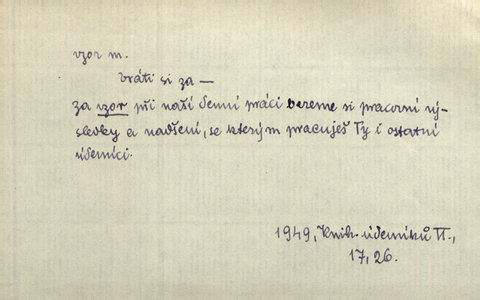 vzor m.
bráti si za —
za vzor při naší denní práci bereme si pracovní vý-
sledky a nadšení, se kterým pracuješ Ty i ostatní
úderníci.
1949, Knih. úderníků VI.,
17, 26.